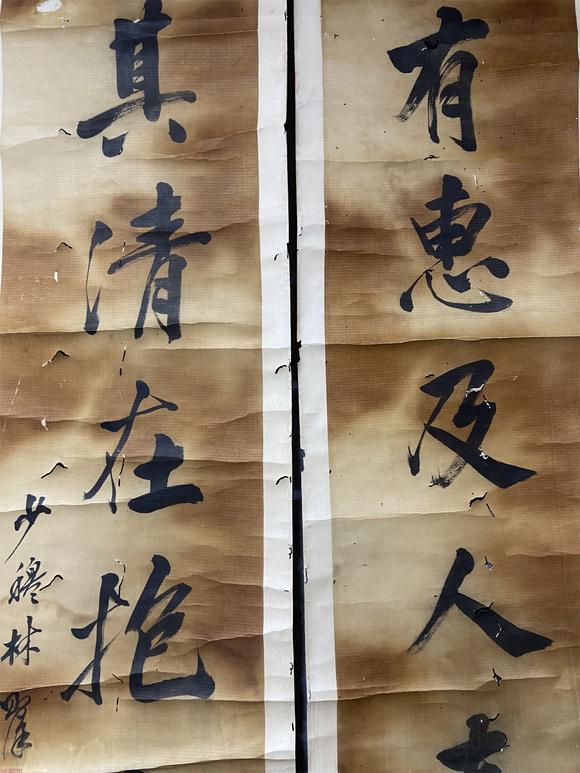 有惠及人
真清在抱
少穆林